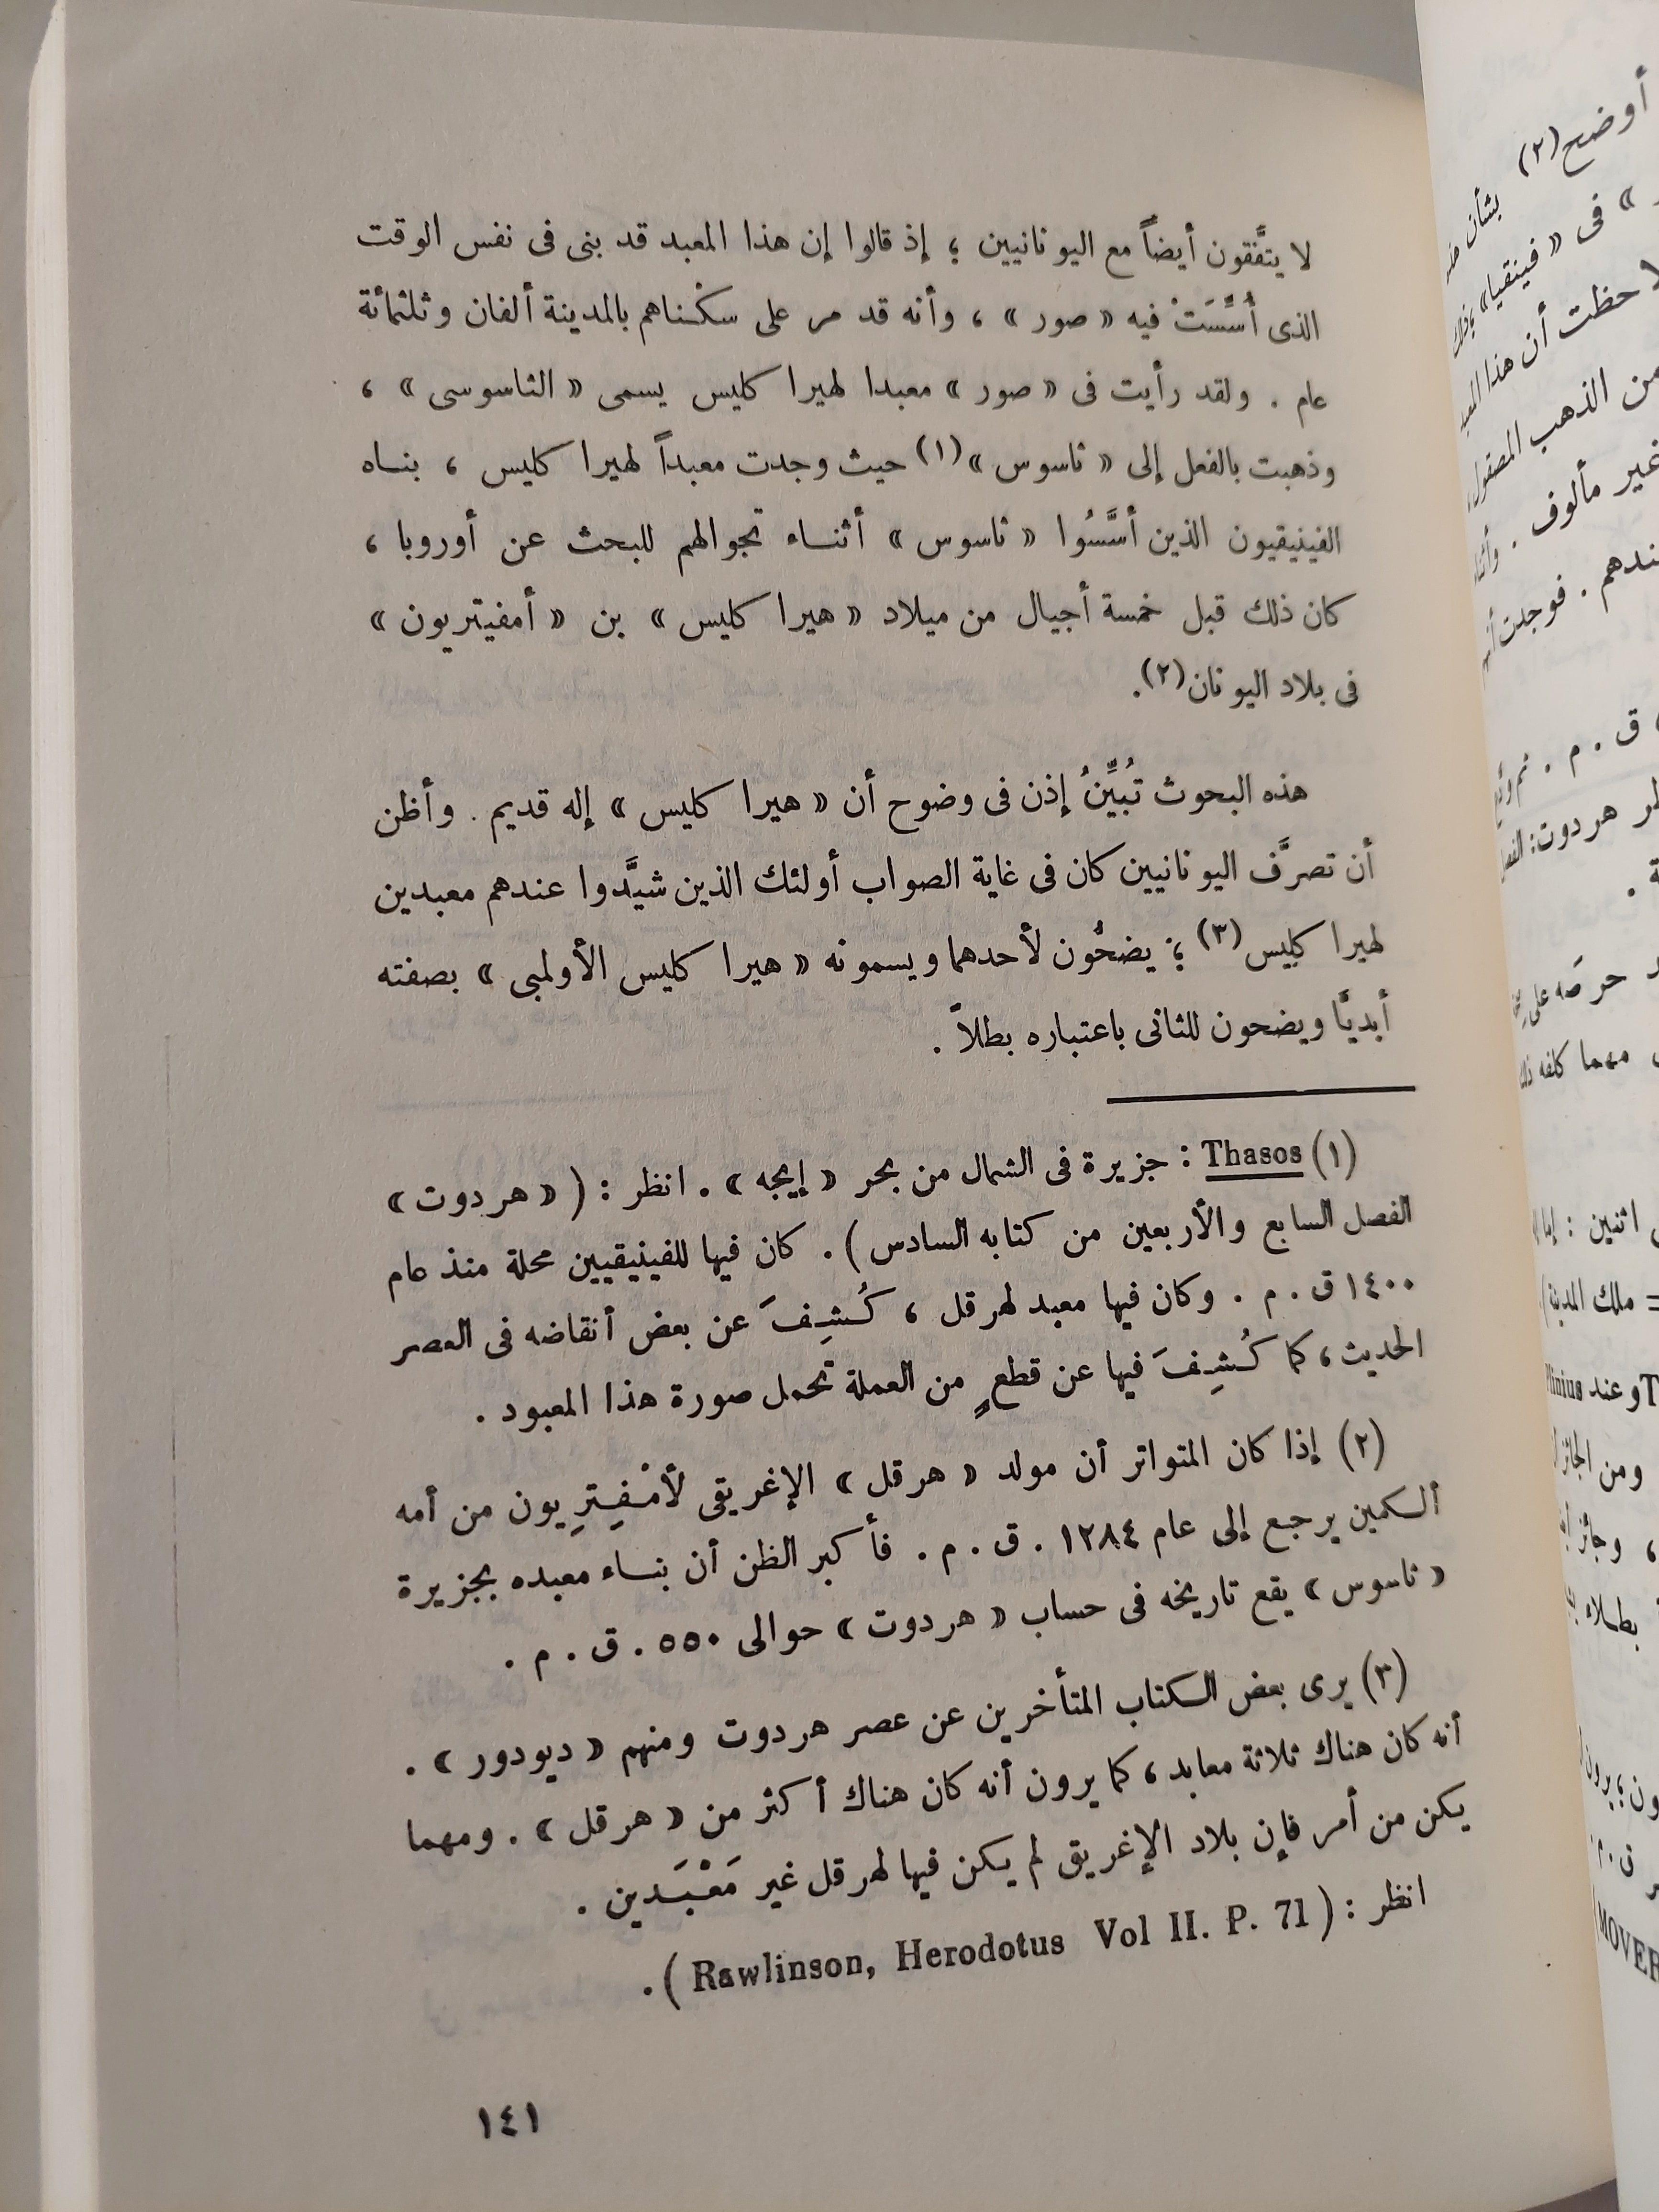 لا يتَّفقون أيضاً مع اليونانيين ؛ إذ قالوا إن هذا المعبد قد بنى فى نفس الوقت
الذى أُسِّسَتْ فيه « صور » ، وأنه قد مر على سكْناهم بالمدينة ألفان وثلثمائة
عام . ولقد رأيت فى « صور » معبدا لهيرا كليس يسمى « الثاسوسى » ،
وذهبت بالفعل إلى « ثاسوس »(١) حيث وجدت معبداً لهيرا كليس ، بناه
الفينيقيون الذين أسَّسُوا « ثاسوس » أثناء تجوالهم للبحث عن أوروبا ،
كان ذلك قبل خمسة أجيال من ميلاد « هيرا كليس » بن « أمفيتريون »
فى بلاد اليونان(٢).
هذه البحوث تُبيِّنُ إذن فى وضوح أن « هيرا كليس » إله قديم . وأظن
أن تصرَّف اليونانيين كان فى غاية الصواب أولئك الذين شيَّدوا عندهم معبدين
لهيرا كليس(٣) ؛ يضحُّون لأحدهما ويسمونه « هيرا كليس الأولمبى » بصفته
أبديًّا ويضحون للثانى باعتباره بطلاً .
(١) Thasos : جزيرة فى الشمال من بحر « إيجه » . انظر : ( « هردوت »
الفصل السابع والأربعين من كتابه السادس ) . كان فيها للفينيقيين محلة منذ عام
١٤٠٠ ق . م . وكان فيها معبد لهرقل ، كُشِفَ عن بعض أنقاضه فى العصر
الحديث ، كما كُشِفَ فيها عن قطعٍ من العملة تحمل صورة هذا المعبود .
(٢) إذا كان المتواتر أن مولد « هرقل » الإغريقى لأمْفِتِرِيون من أمه
ألسكمين يرجع إلى عام ١٢٨٤ . ق . م . فأكبر الظن أن بناء معبده بجزيرة
« ثاسوس » يقع تاريخه فى حساب « هردوت » حوالى ٥٥٠ . ق . م .
(٣) يرى بعض الكتاب المتأخرين عن عصر هردوت ومنهم « ديودور » .
أنه كان هناك ثلاثة معابد ، كما يرون أنه كان هناك أكثر من « هرقل » . ومهما
يكن من أمر فإن بلاد الإغريق لم يكن فيها لهرقل غير مَعْبَدين .
انظر : ( Rawlinson, Herodotus Vol II. P. 71 ) .
١٤١
أوضح(٢) بشأن
» فى « فينقيا »
لاحظت أن هذا المعبد
من الذهب المصقول
غير مألوف .
عندهم . فوجدت
ق . م .
هردوت : الفصل
حرصَه على
مهما كلفه
اثنين :
= ملك المدينة
وعند
ومن الجائز
وجائز